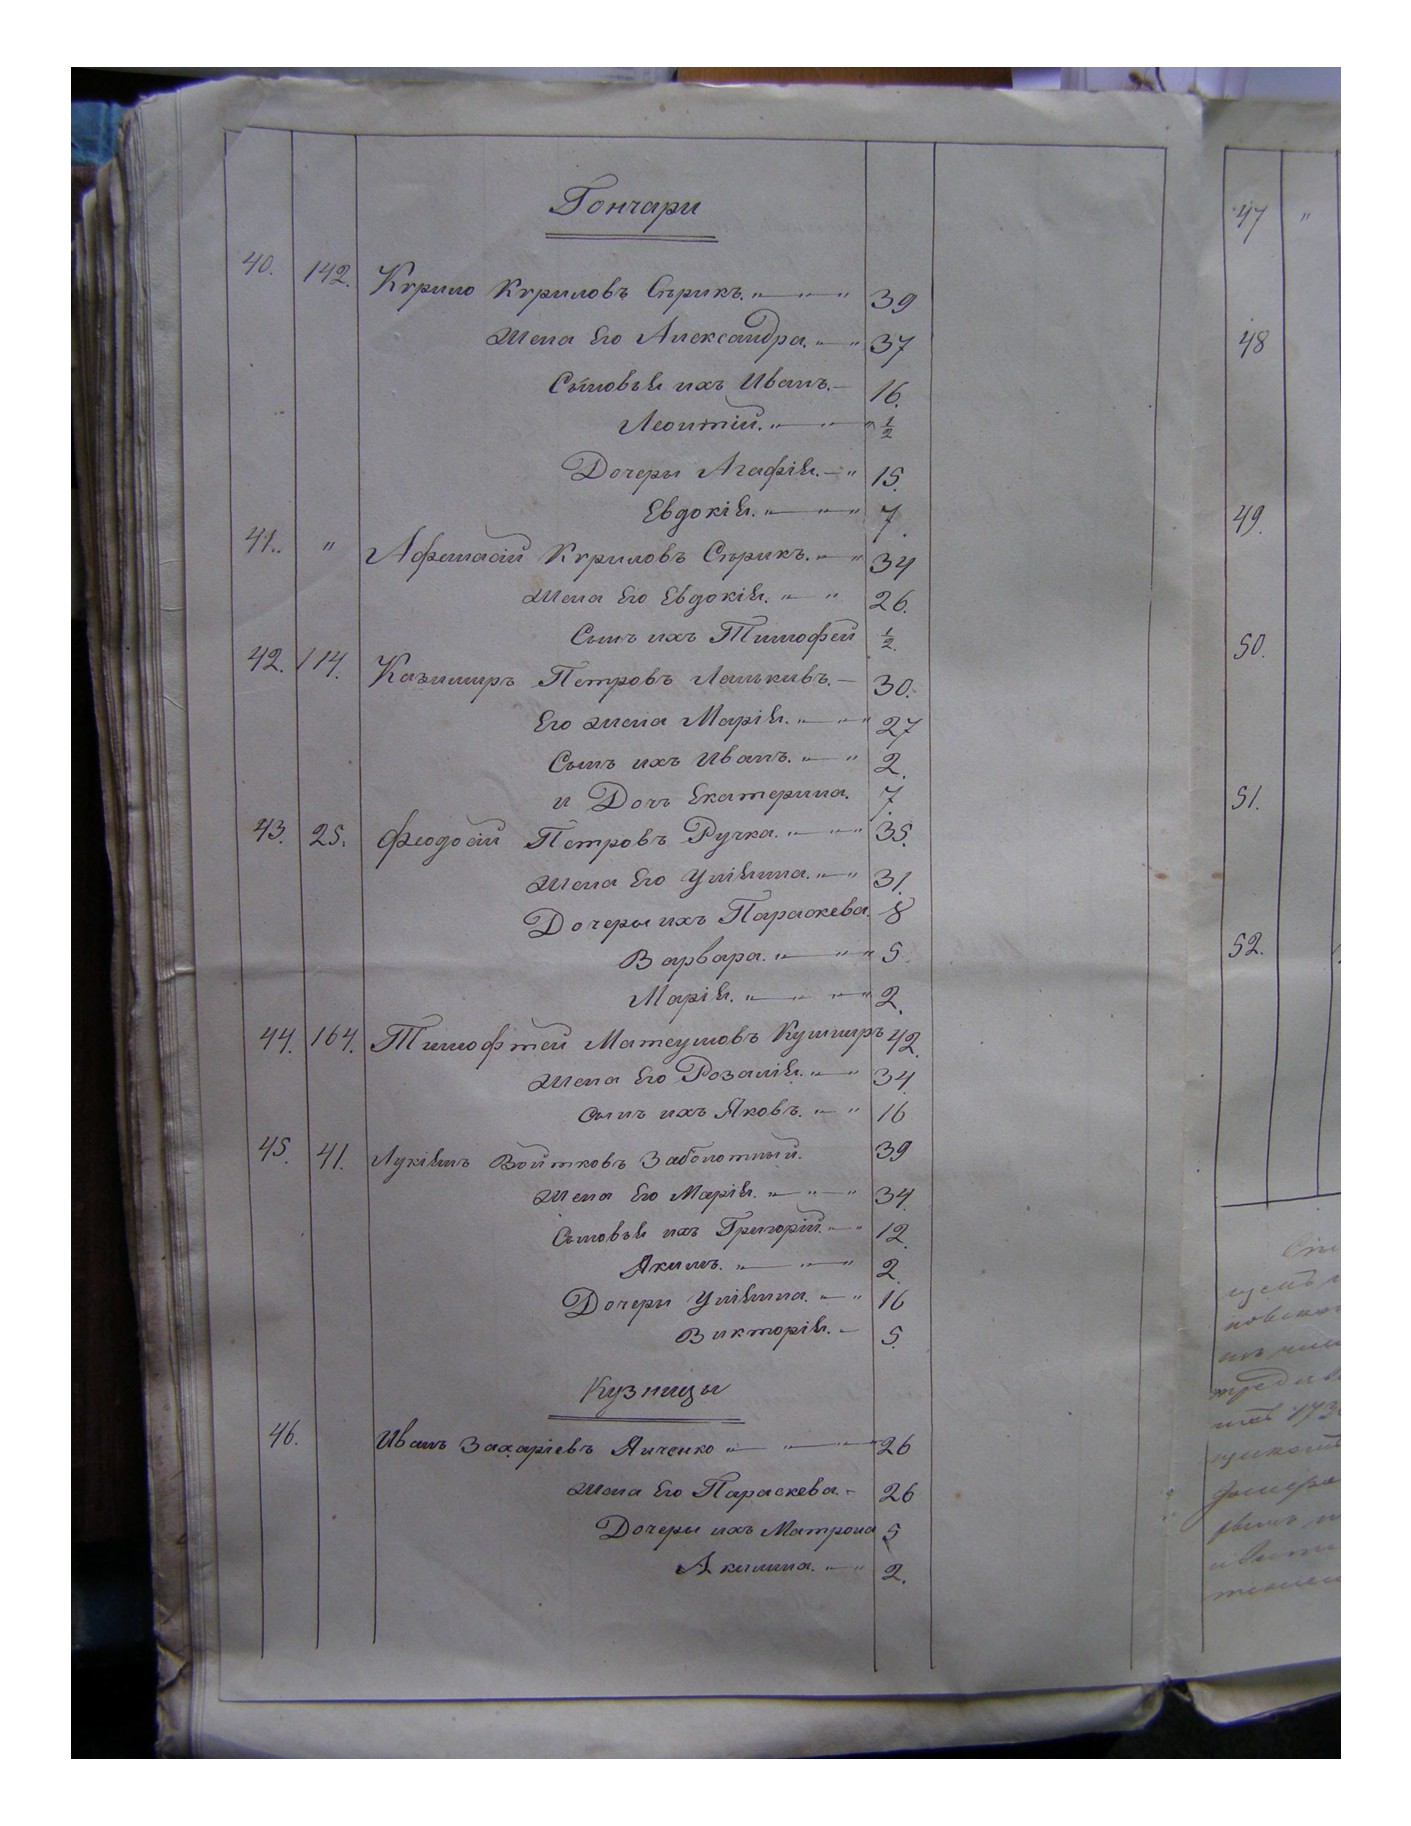 Гончари
40. 142. Курило Куриловъ Сѣрикъ. „ — „ — „ 39
Жена Его Александра. „ — „ 37
Сыновья ихъ Иванъ. — 16.
Леонтій. „ — „ — „ 1/2
Дочеры Агафія. — „ 15.
Евдокія. „ — „ — „ 7.
41. „ Афанасій Куриловъ Сѣрикъ. „ — „ 34
Жена Его Евдокія. „ — „ 26.
Сынъ ихъ Тимофей 1/2
42. 114. Казимиръ Петровъ Ланькивъ. — 30.
Его жена Марія. „ — „ — „ 27
Сынъ ихъ Иванъ. „ — „ 2.
и Дочь Екатерина. 7.
43. 25. Феодосій Петровъ Ручка. „ — „ — „ 35.
Жена Его Уліянна. „ — „ 31.
Дочеры ихъ Параскева. 8
Варвара. „ — „ — „ 5.
Марія. „ — „ — „ 2.
44. 164. Тимофтей Матеушовъ Кушниръ 42.
Жена Его Розалія. „ — „ 34.
Сынъ ихъ Яковъ. „ — „ 16
45. 41. Лукіянъ Войтковъ Заболотный. 39
Жена Его Марія. „ — „ — „ 34.
Сыновья ихъ Григорій. „ — „ 12.
Якимъ. „ — „ — „ 2.
Дочеры Уліянна. „ — „ 16
Викторія. — 5.
Кузнецы
46. Иванъ Захаріевъ Янченко „ — „ — „ 26
Жена Его Параскева. – 26
Дочеры ихъ Матрона 5
Акилина. „ — „ 2.
47 „
48
49.
50.
51.
52.